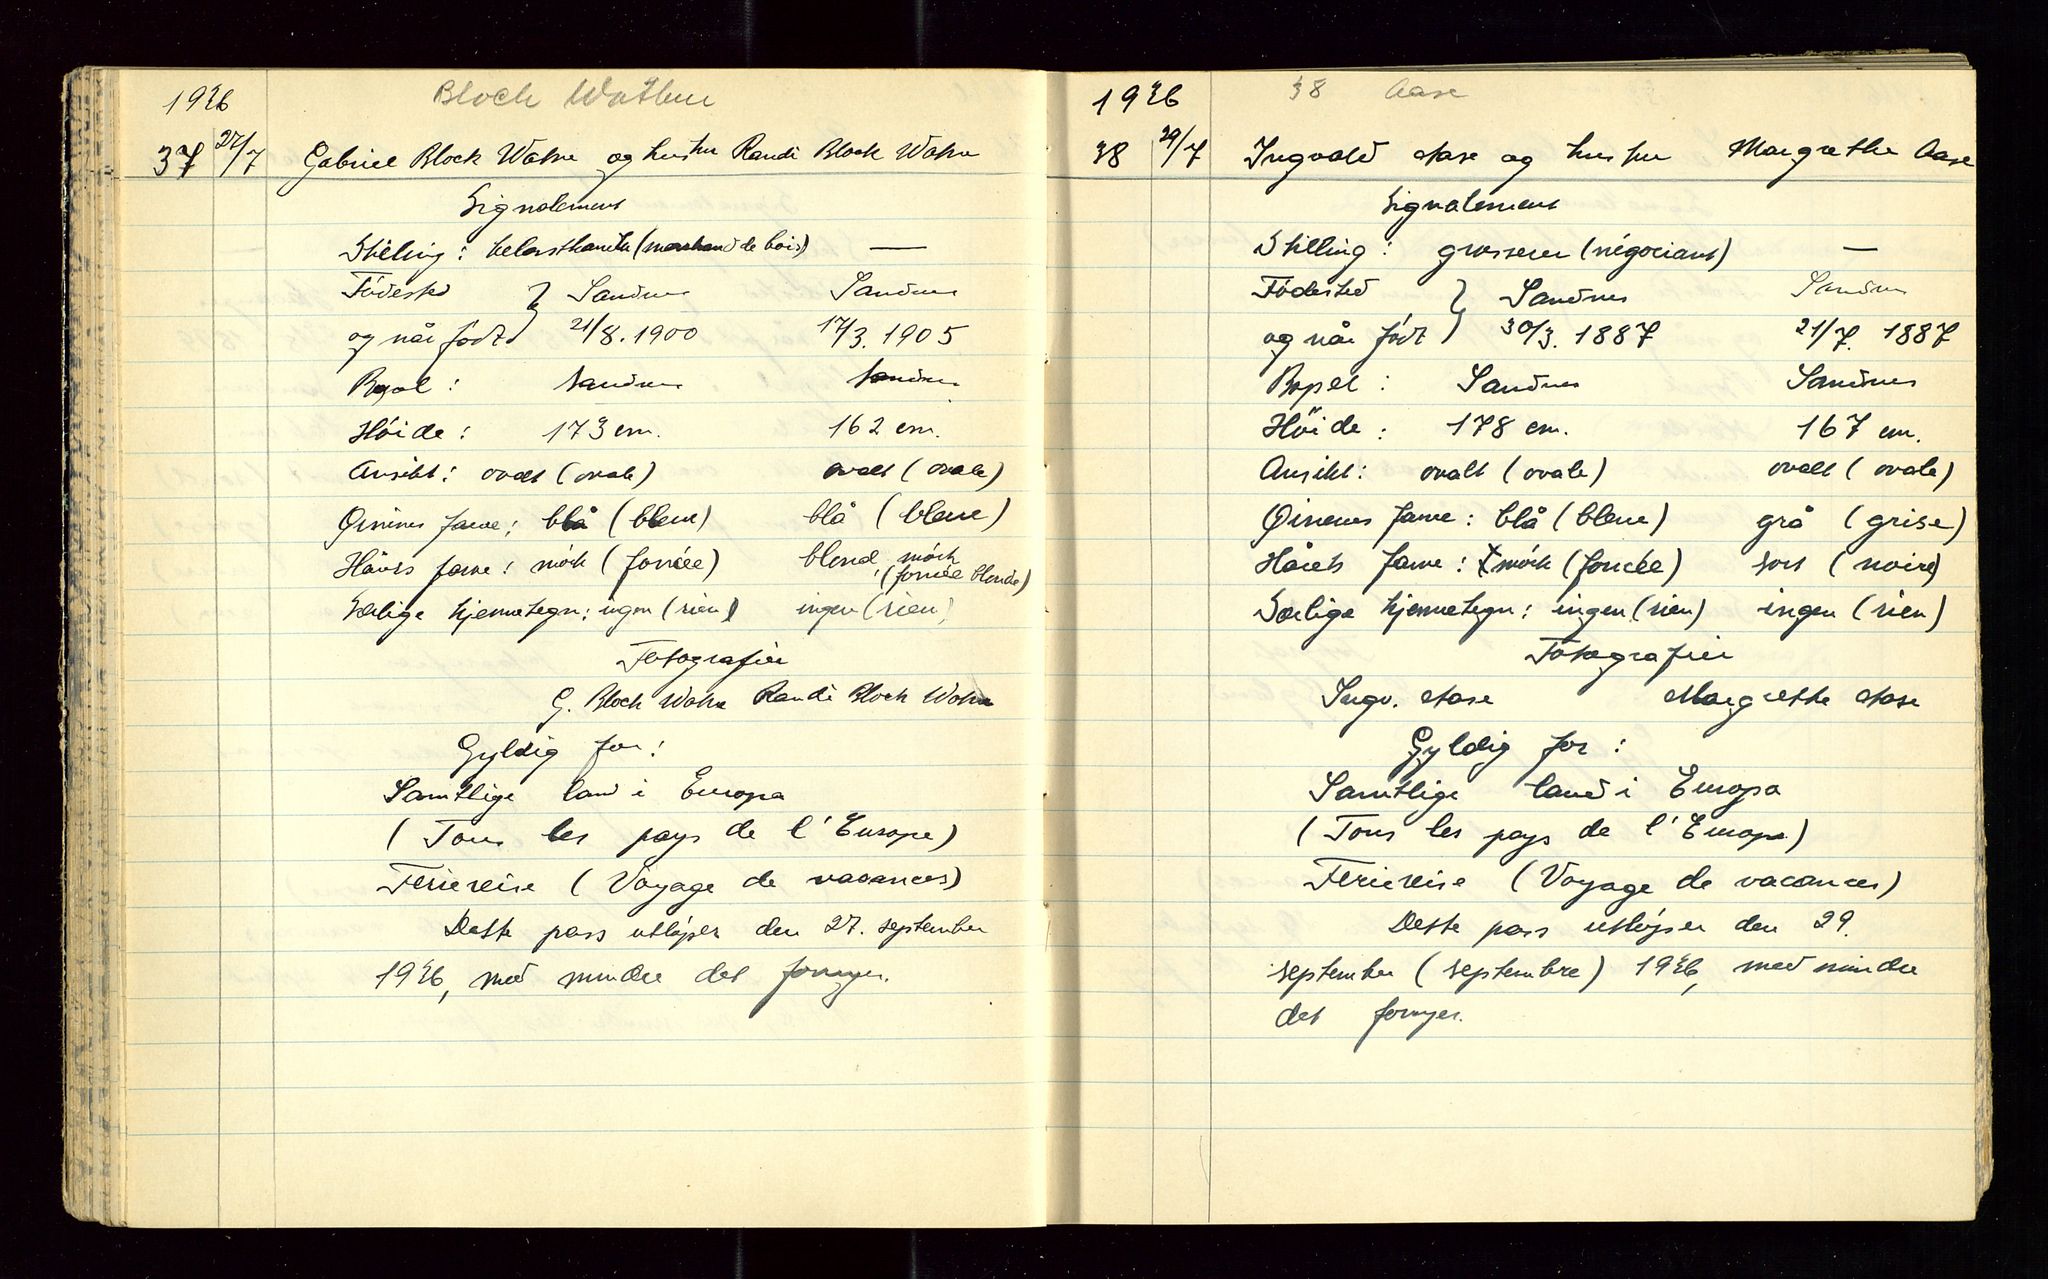 1936
Bloch Wathne
37 27/7 Gabriel Block Watne og hustru Randi Block Watne
Signalement
Stilling: trelasthandler (marchand de bois) —
Fødested } Sandnes Sandnes
og når født 21/8. 1900 17/3. 1905
Bopel: Sandnes Sandnes
Høide: 173 cm. 162 cm.
Ansikt: ovalt (ovale) ovalt (ovale)
Øinenes farve: blå (bleue) blå (bleue)
Hårets farve: mörk (foncée) blond, mörk (foncée blonde)
Særlige kjennetegn: ingen (rien) ingen (rien)
Fotografier
G. Block Watne Randi Block Watne
Gyldig for:
Samtlige land i Europa
(Tous les pays de l'Europe)
Feriereise (Voyage de vacances)
Dette pass utløper den 27. september
1936, med mindre det fornyes.
1936
38 Aase
38 29/7 Ingvald Aase og hustru Margrethe Aase
Signalement
Stilling: grosserer (négociant) —
Fødested } Sandnes Sandnes
og når født 30/3. 1887 21/7. 1887
Bopel: Sandnes Sandnes
Høide: 178 cm. 167 cm.
Ansikt: ovalt (ovale) ovalt (ovale)
Øinenes farve: blå (bleue) grå (grise)
Hårets farve: mörk (foncée) sort (noire)
Særlige kjennetegn: ingen (rien) ingen (rien)
Fotografier
Ingv. Aase Margrethe Aase
Gyldig for:
Samtlige land i Europa
(Tous les pays de l'Europe)
Feriereise (Voyage de vacances)
Dette pass utløper den 29.
september (septembre) 1936, med mindre
det fornyes.